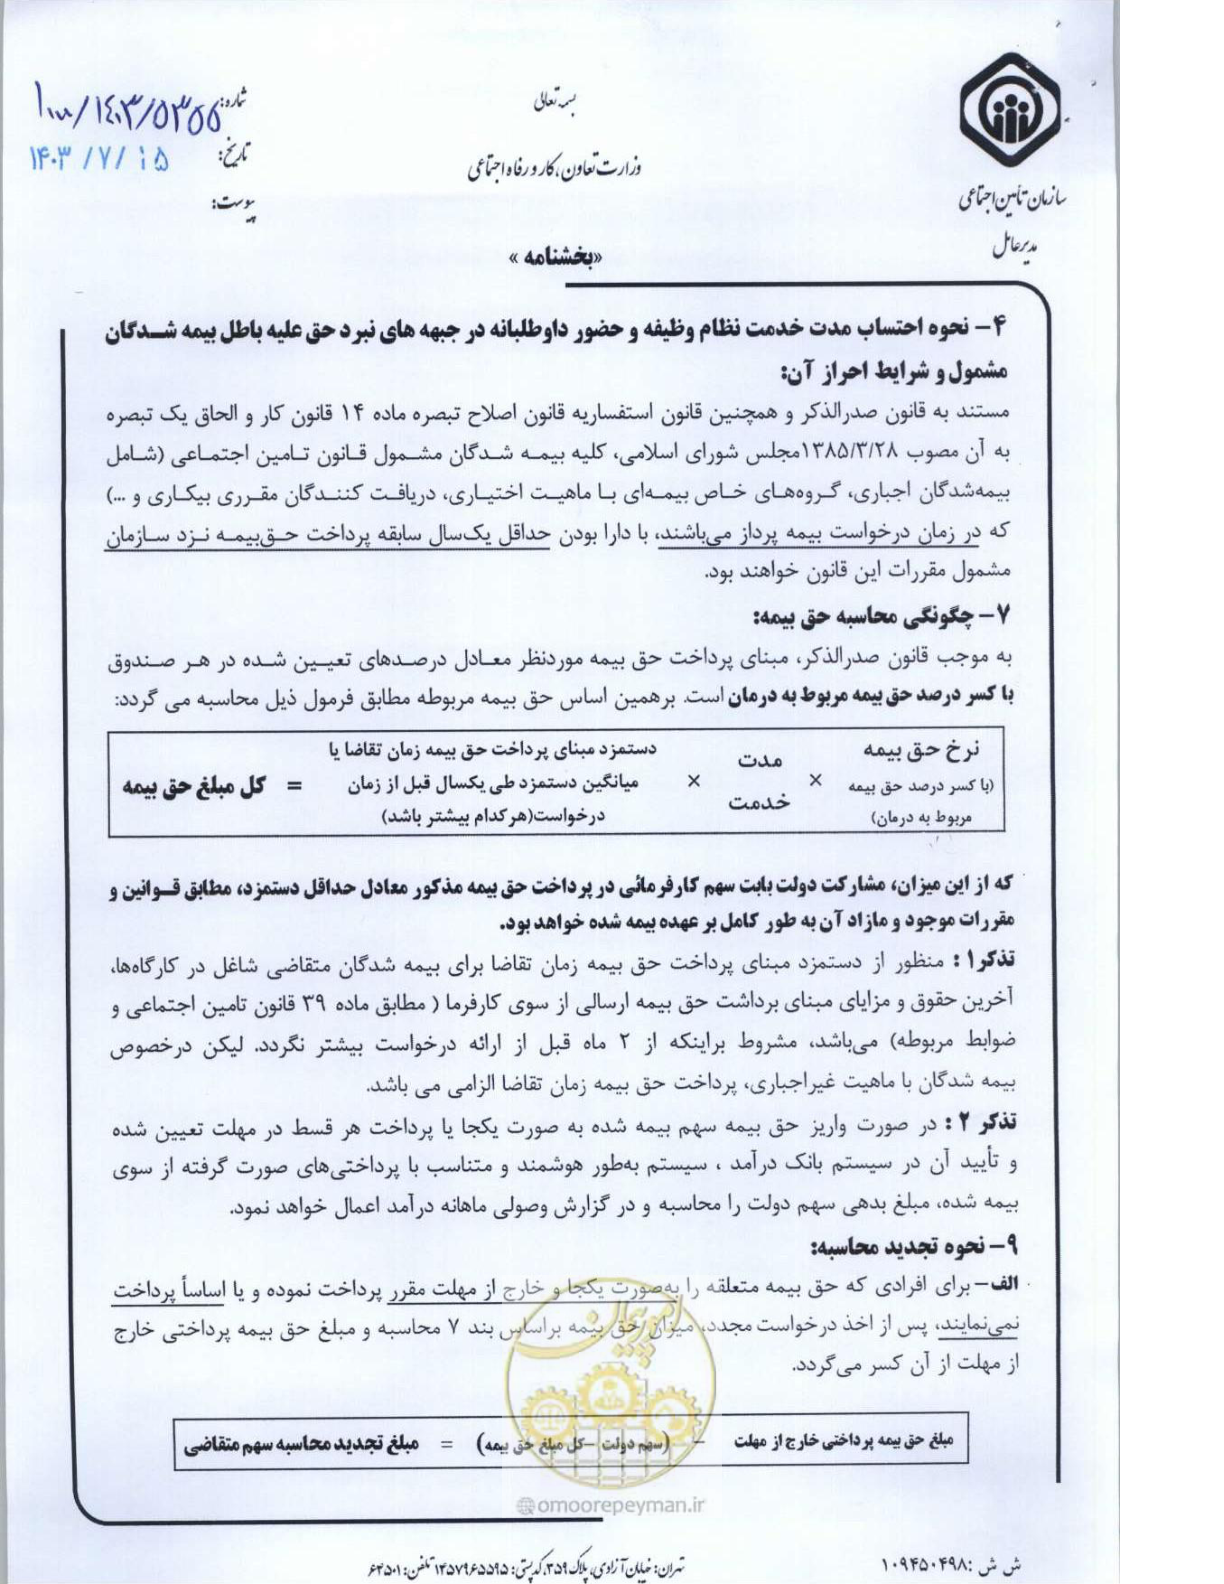 بسمه تعالی
وزارت تعاون، کار و رفاه اجتماعی
سازمان تأمین اجتماعی
مدیرعامل
شماره: ۱۰۰۰/۱۴۰۳/۵۳۵۵
تاریخ: ۱۴۰۳/۷/۱۵
پیوست:
«بخشنامه»
۴- نحوه احتساب مدت خدمت نظام وظیفه و حضور داوطلبانه در جبهه های نبرد حق علیه باطل بیمه شدگان
مشمول و شرایط احراز آن:
مستند به قانون صدرالذکر و همچنین قانون استفساریه قانون اصلاح تبصره ماده ۱۴ قانون کار و الحاق یک تبصره
به آن مصوب ۱۳۸۵/۳/۲۸مجلس شورای اسلامی، کلیه بیمه شدگان مشمول قانون تامین اجتماعی (شامل
بیمه‌شدگان اجباری، گروه‌های خاص بیمه‌ای با ماهیت اختیاری، دریافت کنندگان مقرری بیکاری و ...)
که در زمان درخواست بیمه پرداز می‌باشند، با دارا بودن حداقل یک‌سال سابقه پرداخت حق‌بیمه نزد سازمان
مشمول مقررات این قانون خواهند بود.
۷- چگونگی محاسبه حق بیمه:
به موجب قانون صدرالذکر، مبنای پرداخت حق بیمه موردنظر معادل درصدهای تعیین شده در هر صندوق
با کسر درصد حق بیمه مربوط به درمان است. برهمین اساس حق بیمه مربوطه مطابق فرمول ذیل محاسبه می گردد:
نرخ حق بیمه (با کسر درصد حق بیمه مربوط به درمان) × مدت خدمت × دستمزد مبنای پرداخت حق بیمه زمان تقاضا یا میانگین دستمزد طی یکسال قبل از زمان درخواست(هرکدام بیشتر باشد) = کل مبلغ حق بیمه
که از این میزان، مشارکت دولت بابت سهم کارفرمائی در پرداخت حق بیمه مذکور معادل حداقل دستمزد، مطابق قوانین و
مقررات موجود و مازاد آن به طور کامل بر عهده بیمه شده خواهد بود.
تذکر۱ : منظور از دستمزد مبنای پرداخت حق بیمه زمان تقاضا برای بیمه شدگان متقاضی شاغل در کارگاه‌ها،
آخرین حقوق و مزایای مبنای برداشت حق بیمه ارسالی از سوی کارفرما ( مطابق ماده ۳۹ قانون تامین اجتماعی و
ضوابط مربوطه) می‌باشد، مشروط براینکه از ۲ ماه قبل از ارائه درخواست بیشتر نگردد. لیکن درخصوص
بیمه شدگان با ماهیت غیراجباری، پرداخت حق بیمه زمان تقاضا الزامی می باشد.
تذکر ۲ : در صورت واریز حق بیمه سهم بیمه شده به صورت یکجا یا پرداخت هر قسط در مهلت تعیین شده
و تأیید آن در سیستم بانک درآمد ، سیستم به‌طور هوشمند و متناسب با پرداختی‌های صورت گرفته از سوی
بیمه شده، مبلغ بدهی سهم دولت را محاسبه و در گزارش وصولی ماهانه درآمد اعمال خواهد نمود.
۹- نحوه تجدید محاسبه:
الف- برای افرادی که حق بیمه متعلقه را به‌صورت یکجا و خارج از مهلت مقرر پرداخت نموده و یا اساساً پرداخت
نمی‌نمایند، پس از اخذ درخواست مجدد، میزان حق بیمه براساس بند ۷ محاسبه و مبلغ حق بیمه پرداختی خارج
از مهلت از آن کسر می‌گردد.
مبلغ حق بیمه پرداختی خارج از مهلت - (سهم دولت -کل مبلغ حق بیمه) = مبلغ تجدید محاسبه سهم متقاضی
امور پیمان
omoorepeyman.ir
ش ش :۱۰۹۴۵۰۴۹۸
تهران: خیابان آزادی، پلاک ۳۵۹، کدپستی: ۱۴۵۷۹۶۵۵۹۵ تلفن: ۶۴۵۰۱